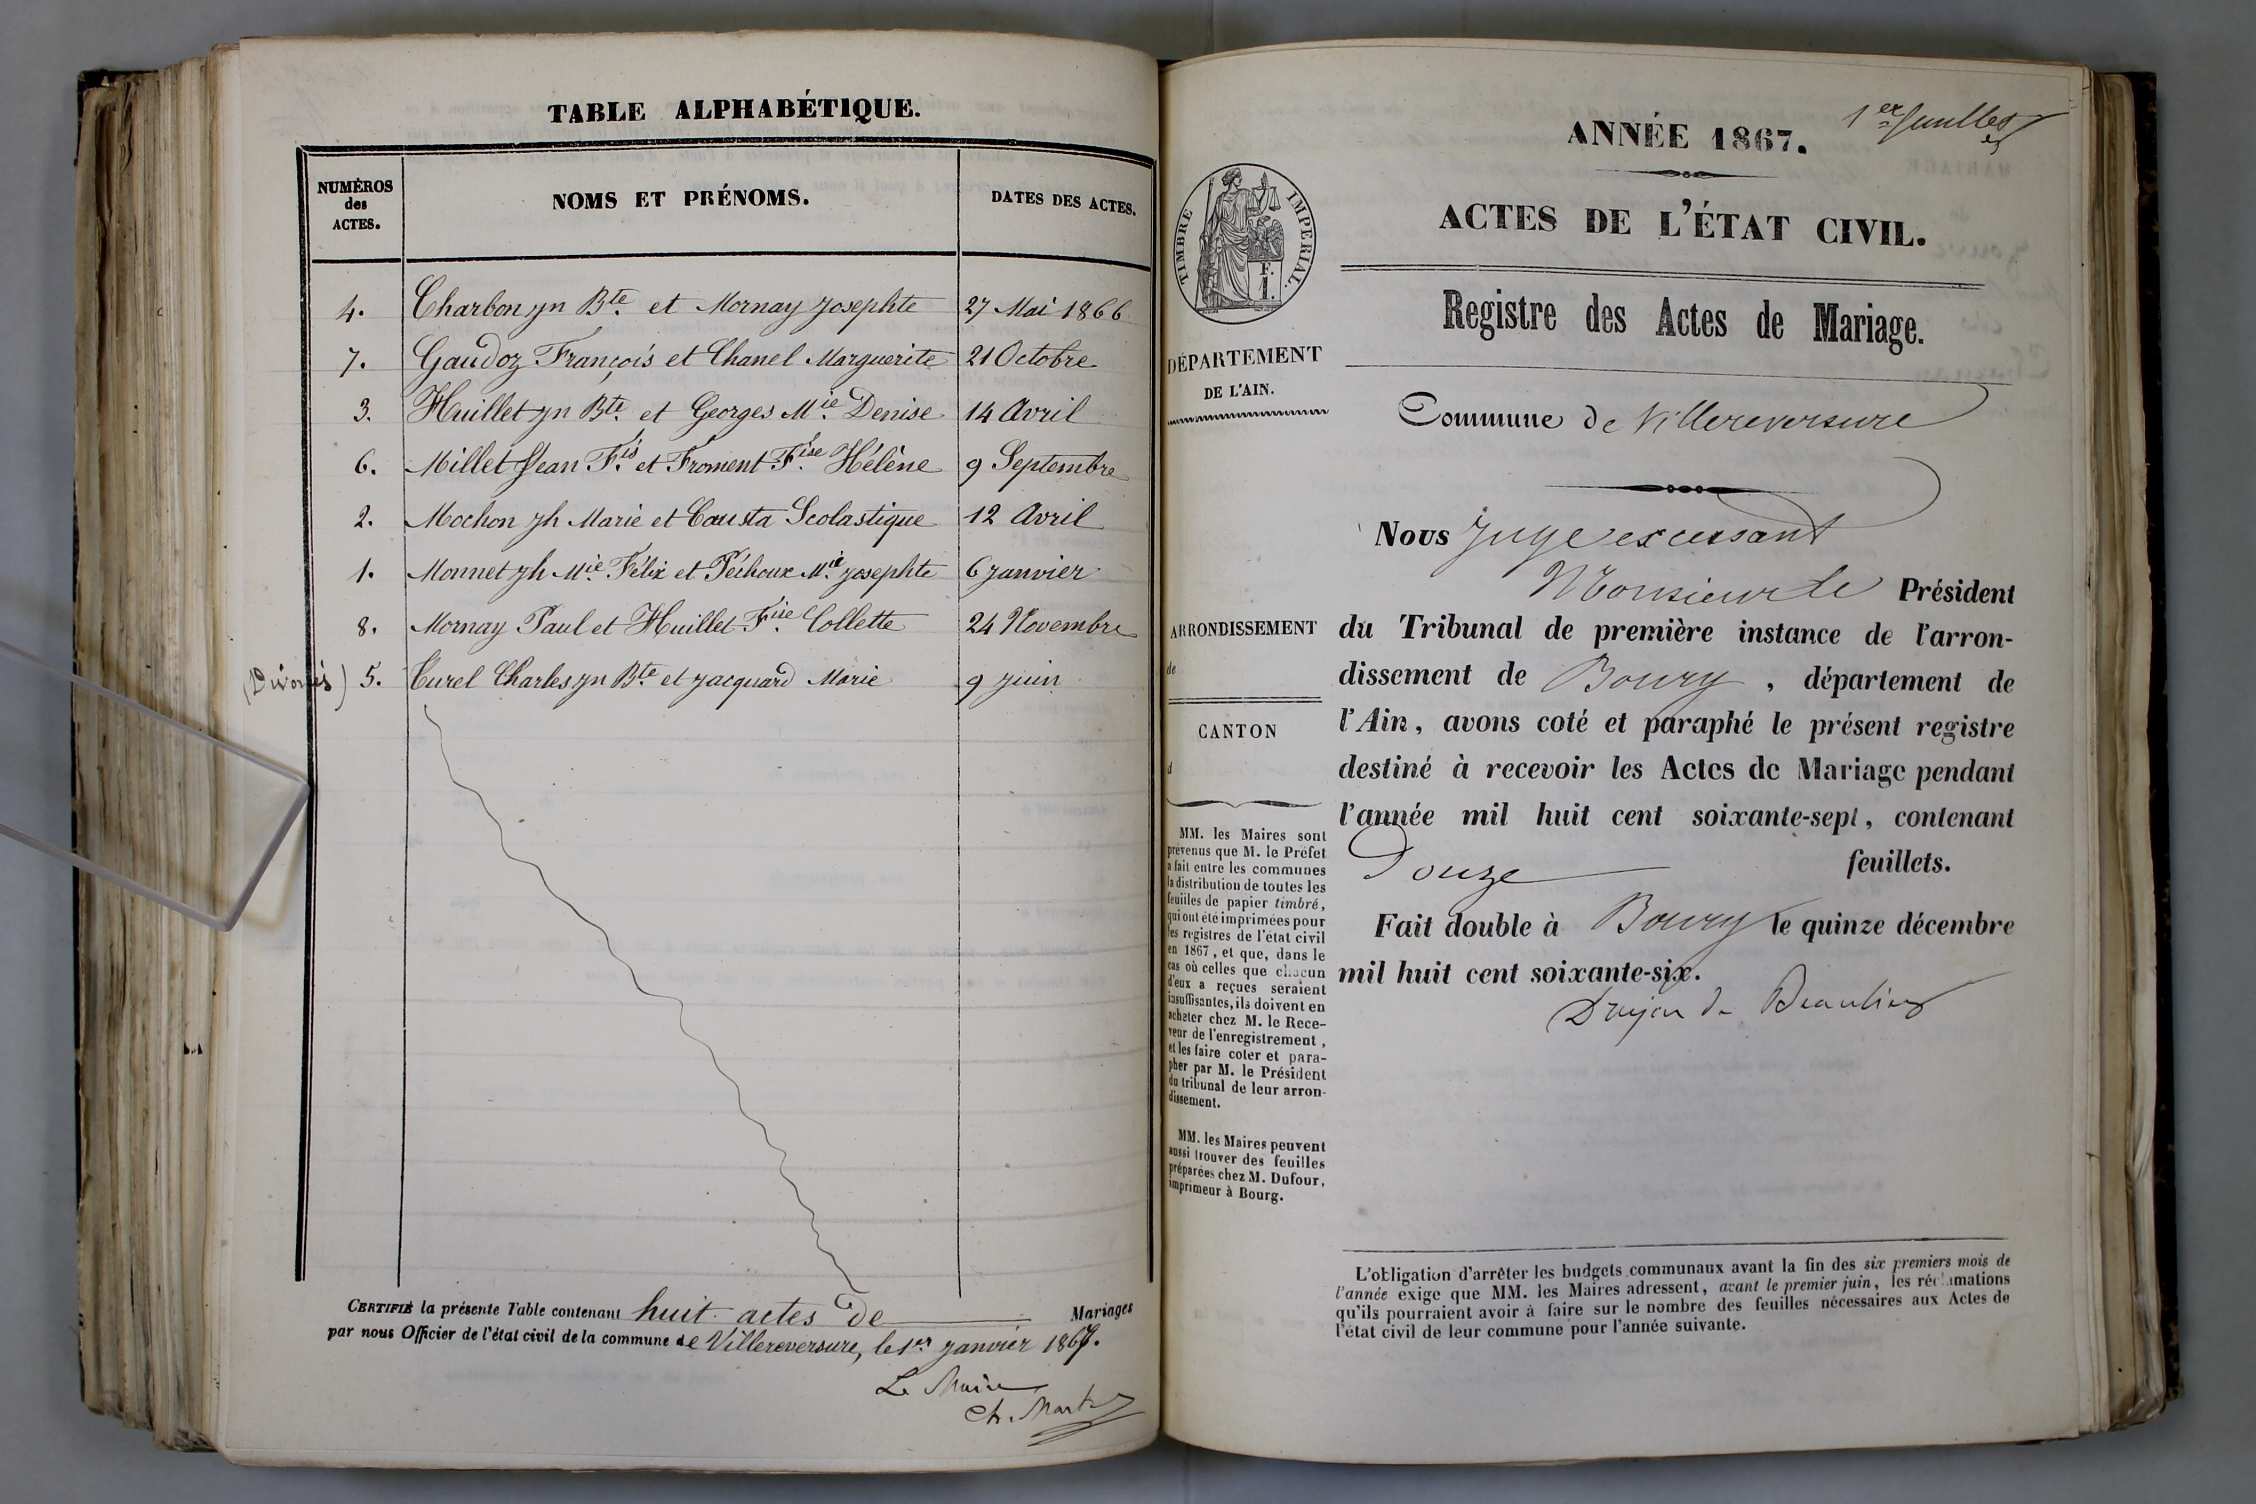 TABLE ALPHABÉTIQUE.
NUMÉROS des ACTES.
NOMS ET PRÉNOMS.
DATES DES ACTES.
4. Charbon jn Bte et Mornay Josephte 27 Mai 1866
7. Gaudoz François et Chanel Marguerite 21 Octobre
3. Huillet jn Bte et Georges Mie Denise 14 Avril
6. Millet Jean Fis et Froment Fise Hélène 9 Septembre
2. Mochon jh Marie et Cousta Scolastique 12 Avril
1. Monnet jh Mie Félix et Péchoux Mie Josephte 6 Janvier
8. Mornay Paul et Huillet Fise Collette 24 Novembre
(Divorcés) 5. Turel Charles jn Bte et Jacquard Marie 9 juin
CERTIFIÉ la présente Table contenant huit actes de Mariages
par nous Officier de l'état civil de la commune de Villereversure, le 1er Janvier 1867.
Le Maire
Ch. Mart
1er feuillet
ANNÉE 1867.
ACTES DE L'ÉTAT CIVIL.
Registre des Actes de Mariage.
TIMBRE IMPERIAL.
F.
1.
DÉPARTEMENT
DE L'AIN.
ARRONDISSEMENT
de
CANTON
d
MM. les Maires sont
prévenus que M. le Préfet
a fait entre les communes
la distribution de toutes les
feuilles de papier timbré,
qui ont été imprimées pour
les registres de l'état civil
en 1867, et que, dans le
cas où celles que chacun
d'eux a reçues seraient
insuffisantes, ils doivent en
acheter chez M. le Rece-
veur de l'enregistrement,
et les faire coter et para-
pher par M. le Président
du tribunal de leur arron-
dissement.
MM. les Maires peuvent
aussi trouver des feuilles
préparées chez M. Dufour,
imprimeur à Bourg.
Commune de Villereversure
Nous Juge
Monsieur le Président
du Tribunal de première instance de l'arron-
dissement de Bourg, département de
l'Ain, avons coté et paraphé le présent registre
destiné à recevoir les Actes de Mariage pendant
l'année mil huit cent soixante-sept, contenant
Douze feuillets.
Fait double à Bourg le quinze décembre
mil huit cent soixante-six.
Dujon de Beaulieu
L'obligation d'arrêter les budgets communaux avant la fin des six premiers mois de
l'année exige que MM. les Maires adressent, avant le premier juin, les réclamations
qu'ils pourraient avoir à faire sur le nombre des feuilles nécessaires aux Actes de
l'état civil de leur commune pour l'année suivante.